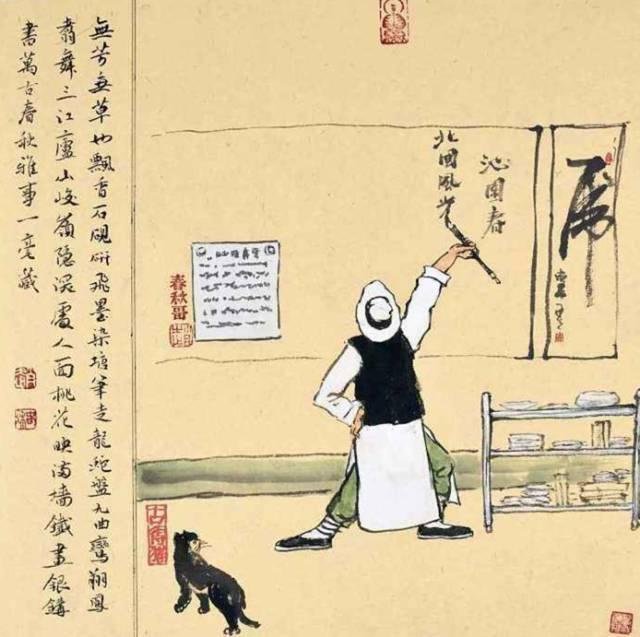 虎
沁園春
北國風
春秋哥
無芳無草也飄香石硯研飛墨染塘筆走龍蛇盤九曲鸞翔鳳
翥舞三江廬山峻嶺隱深處人面桃花映滿墻鐵畫銀鈎
書萬古春秋雅事一毫藏